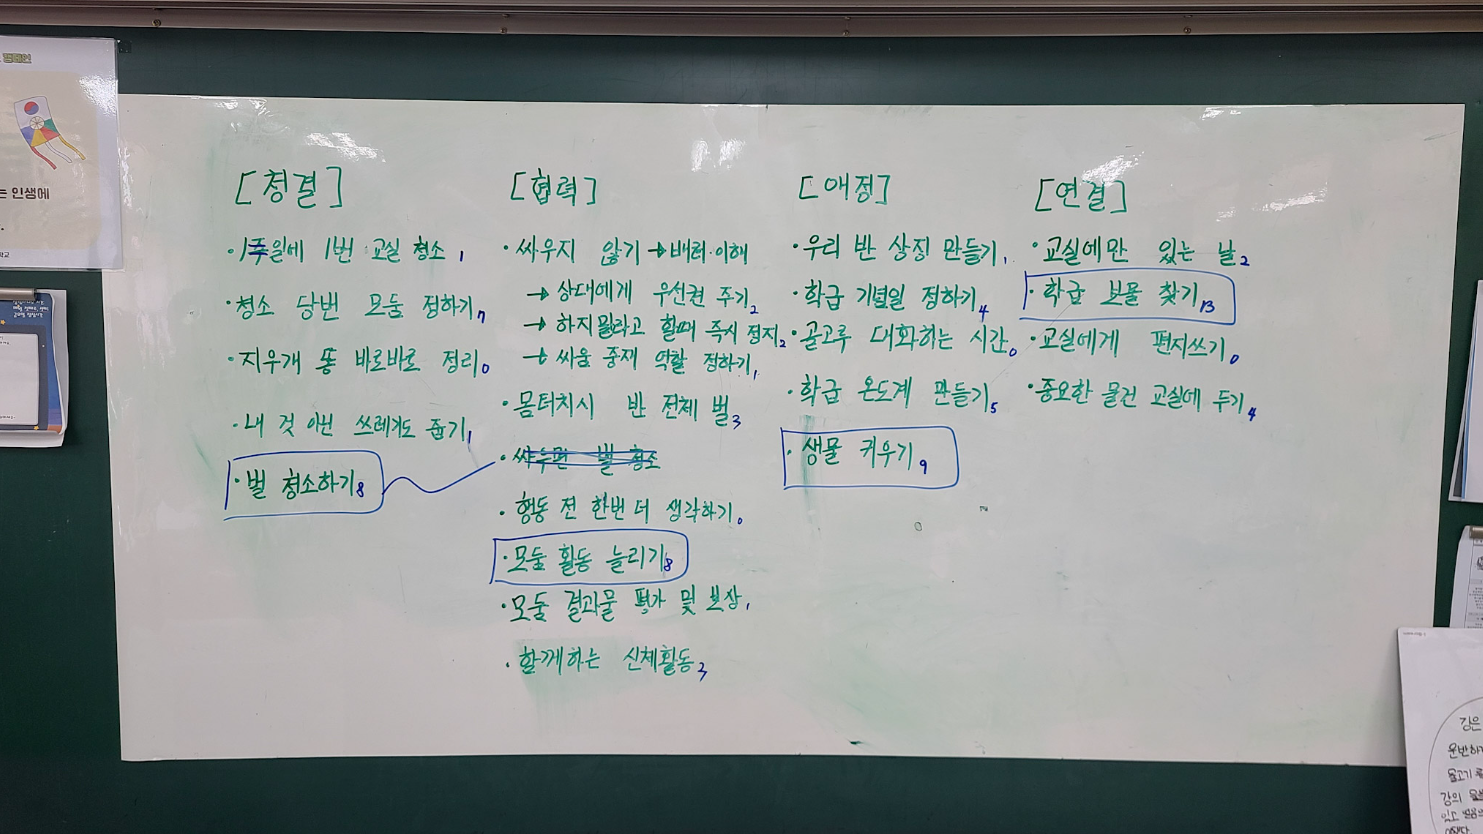 [청결]
· 1주일에 1번 교실 청소 1
· 청소 당번 모둠 정하기 7
· 지우개 똥 바로바로 정리 0
· 내 것 아닌 쓰레기도 줍기 1
· 벌 청소하기 8
[협력]
· 싸우지 않기 → 배려·이해
→ 상대에게 우선권 주기 2
→ 하지말라고 할때 즉시 정지 2
→ 싸움 중재 역할 정하기 1
· 몸터치시 반 전체 벌 3
· 싸우면 벌 청소
· 행동 전 한번 더 생각하기 0
· 모둠 활동 늘리기 8
· 모둠 결과물 평가 및 보상 1
· 함께하는 신체활동 3
[애정]
· 우리 반 상징 만들기 1
· 학급 기념일 정하기 4
· 골고루 대화하는 시간 0
· 학급 온도계 만들기 5
· 생물 키우기 9
[연결]
· 교실에만 있는 날 2
· 학급 보물 찾기 13
· 교실에게 편지쓰기 0
· 중요한 물건 교실에 두기 4
는 인생에
김은
운반하
물고기
강의